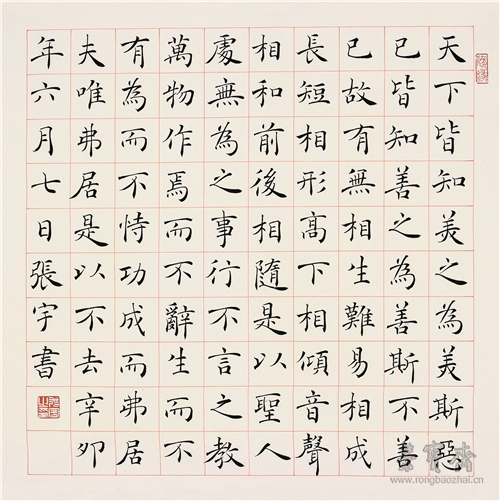 天下皆知美之為美斯惡
已皆知善之為善斯不善
已故有無相生難易相成
長短相形高下相傾音聲
相和前後相隨是以聖人
處無為之事行不言之教
萬物作焉而不辭生而不
有為而不恃功成而弗居
夫唯弗居是以不去辛卯
年六月七日張宇書
榮寶齋
www.rongbaozhai.cn